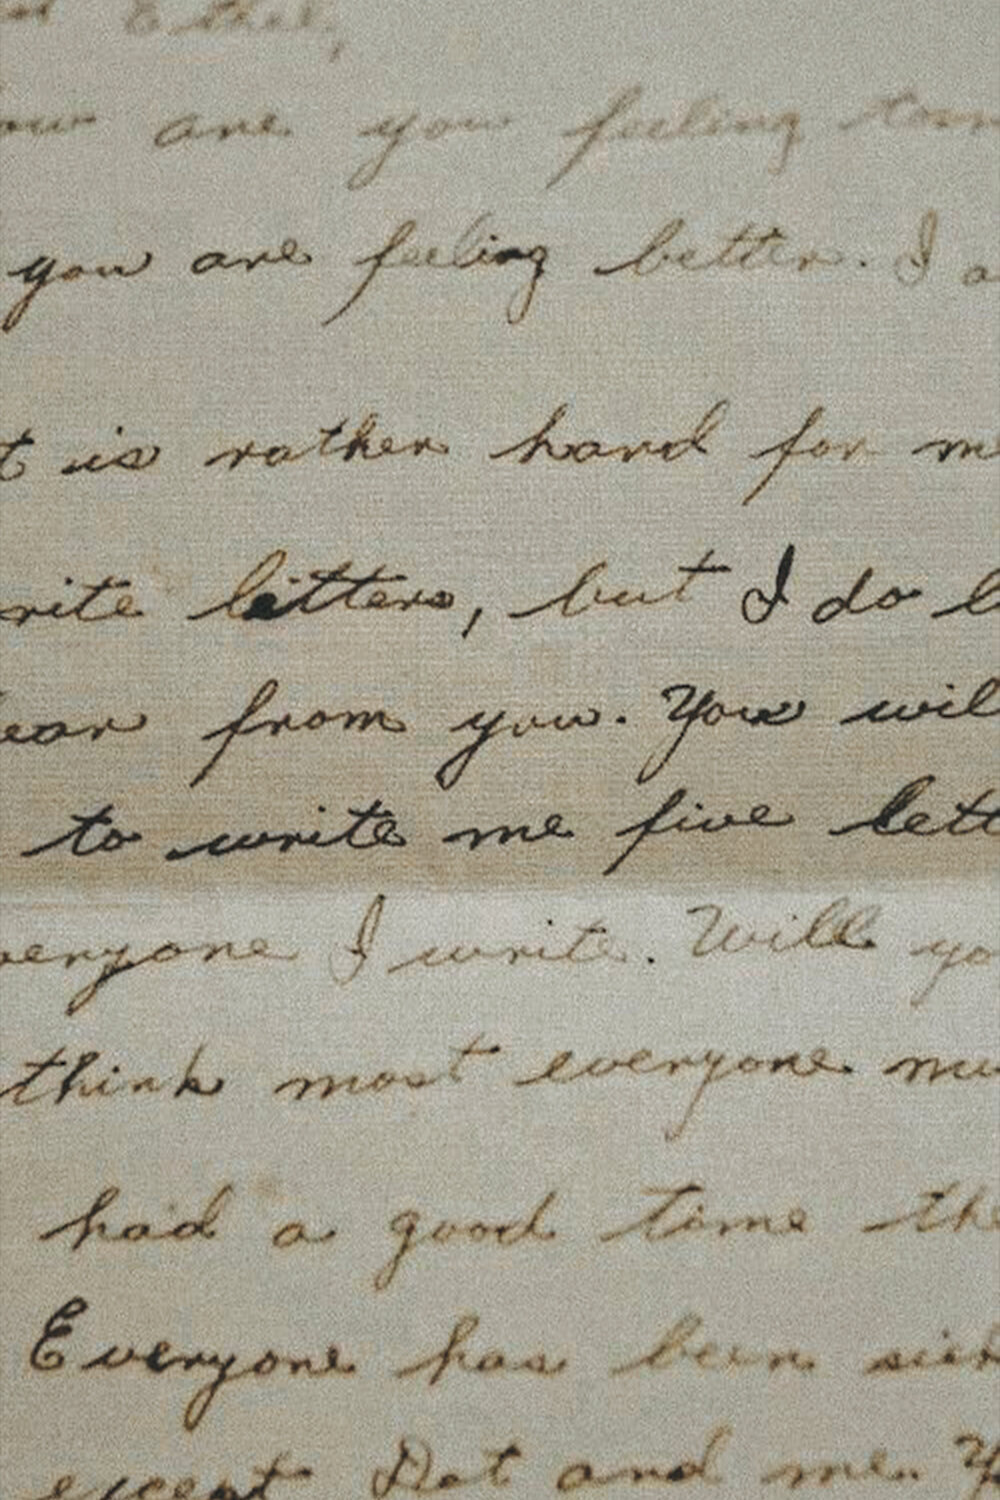 Ethel,
ow are you feeling
you are feeling better. I a
t is rather hard for m
rite letters, but I do l
ear from you. You wil
to write me five lett
veryone I write. Will yo
think most everyone mu
had a good time the
Everyone has been sick
except Dot and me. Y